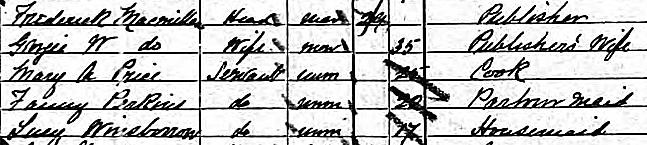 Frederick Macmillan Head mar Publisher
Georgie W do Wife mar 35 Publisher's Wife
Mary A Price Servant unm 25 Cook
Fanny Perkins do unm 20 Parlour maid
Lucy Winsborrow do unm 17 Housemaid